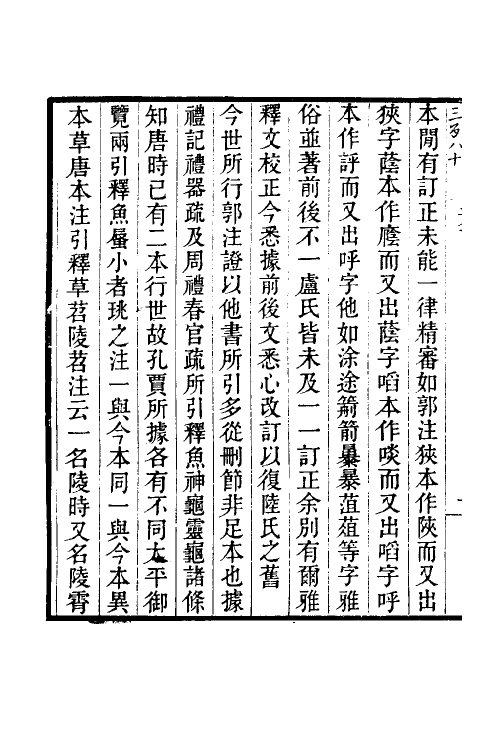 本閒有訂正未能一律精審如郭注狹本作陝而又出
狹字蔭本作廕而又出蔭字啗本作啖而又出啗字呼
本作評而又出呼字他如涂途箭箭暴暴菹葅等字雅
俗並著前後不一盧氏皆未及一一訂正余別有爾雅
釋文校正今悉據前後文悉心改訂以復陸氏之舊
今世所行郭注證以他書所引多從刪節非足本也據
禮記禮器疏及周禮春官疏所引釋魚神龜靈龜諸條
知唐時已有二本行世故孔賈所據各有不同太平御
覽兩引釋魚蜃小者珧之注一與今本同一與今本異
本草唐本注引釋草苕陵苕注云一名陵時又名陵霄